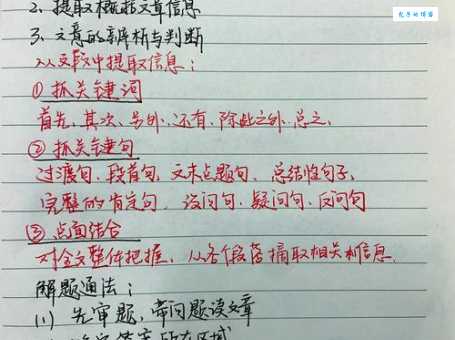 2、提取概括文章信息
3、文意的辨析与判断
从文段中提取信息：
① 抓关键词
首先、其次、另外、还有、除此之外、总之、
② 抓关键句
过渡句、段首句、文末点题句、总结性句子、
完整的肯定句、设问句、疑问句、反问句
③ 点面结合
对全文整体把握，从各个段落摘取相关和信息.
解题通法：
(1) 先审题，带问题读文章
所在区域